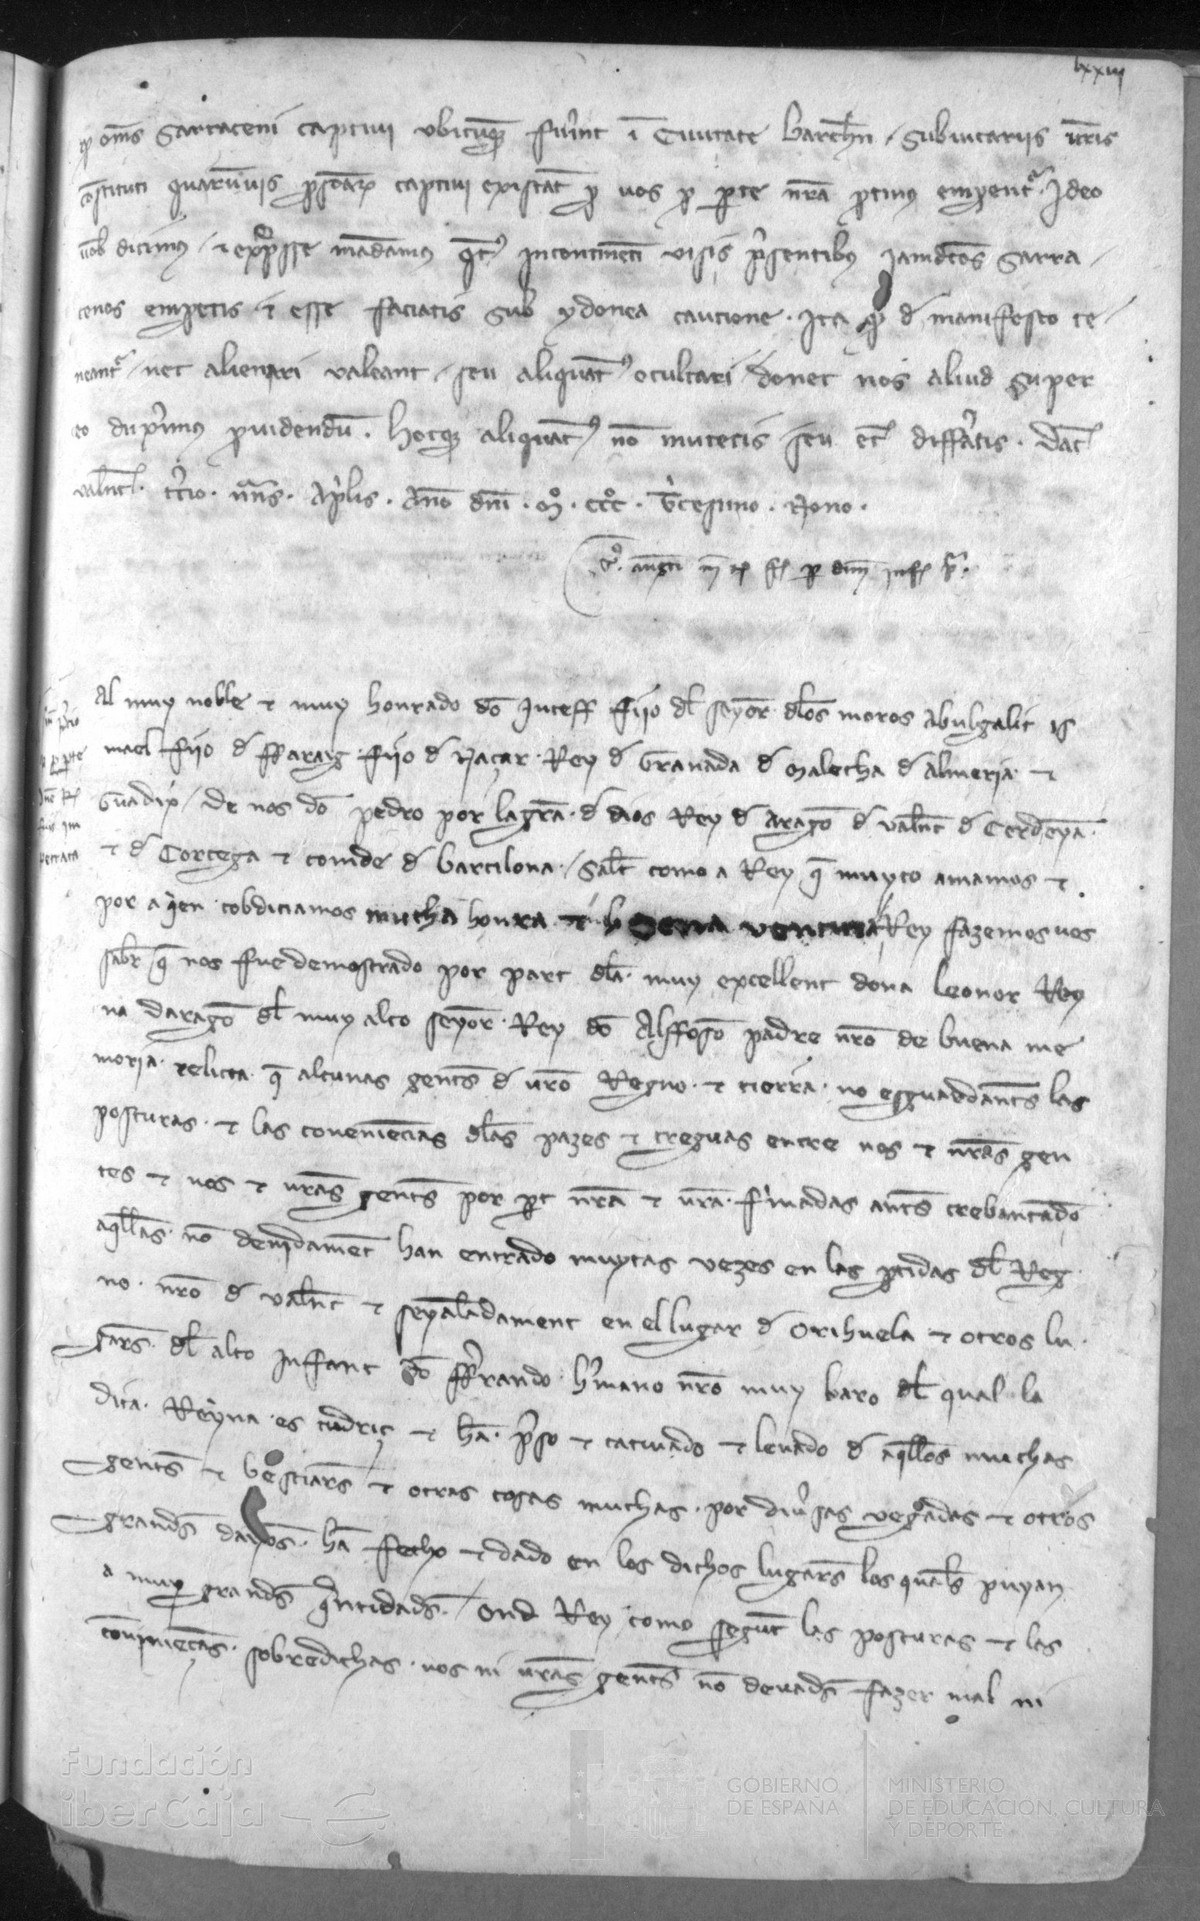 lxxiij
qꝫ om̅s Sarraceni captiui vbicūqꝫ fu̓int ī Ciuitate barch̅n Subuicariis ur̅is
co̅stituti quarūuis ꝑso̅arꝝ captiui exista̅t ꝑ uos ꝓ ꝑte nr̅a ꝓtinus emperent᷑. Ideo
uob̅ dicimus et expͣsse ma̅damus q̅t᷒ incontine̅ti visis p̓sentibus iamdc̅os Sarra
cenos emperetis et esse faciatis sub ydonea cautione. Ita qꝫ d̅ manifesto te
neant᷑ nec alienari valeant seu aliquat᷒ ocultari donec nos aliud super
eo dux̓imus ꝓuidendu̅. hocqꝫ aliquat᷒ no̅ mutetis seu et̅ diffe̓atis. Dat̅
vale̅ct̅. t̓cio. no̅as. Ap̓lis. Anno dn̅i. M̊. CCC̊. T̓cesimo. Nono.
Al muy noble et muy honrado do̅ Juceff fijo dl̅ seyor dl̅os moros Abulgalit is
mael fijo d̅ ffaraig fijo d̅ Naçar Rey d̅ Granada d̅ Malecha d̅ Almeria et
Guadix / De nos do̅ pedro por la gr̅a d̅ dios Rey d̅ Arago̅ d̅ vale̅c d̅ Cerdeya̅
et d̅ Corcega et comde d̅ barcilona / Salt̅ como a Rey q̅ muyto amamos et
por a q̓en cobdiciamos mucha honra et buena ventura Rey fazemos uos
sabr̅ q̅ nos fue demostrado por part dl̅a muy excellent dona Leonor Rey
na darago̅ dl̅ muy alto seyor Rey do̅ Alffoso̅ padre nr̅o de buena me
moria relicta q̅ alcunas gent̅s d̅ ur̅o Regno et tierra no esguardant̅s las
posturas et las coneniencias dl̅as pazes et treguas entre nos et nr̅as gen
tes et uos et ur̅as gent̅s por ꝑt nr̅a et ur̅a f̓madas ant̅s crebantado
aq̅llas no̅ deuidament han entrado muytas vezes en las ꝑtidas dl̅ Reg
no nr̅o d̅ vale̅c et seyaladament en el lugar d̅ Orihuela et otros lu
gar̅s dl̅ alto Inffant do̅ ff̓rando h̓mano nr̅o muy karo dl̅ qual la
dita Reyna es tudriç et ha̅ p̓so et catiuado et leuado d̅ aq̅llos muchas
gent̅s et bestiar̅s et otras cosas muchas por diu̓sas vegadas et otros
grand̅s dayos ha̅ fecho et dado en los dichos lugar̅s los qual̅s puyan
a muy grand̅s q̅ntidad̅s. Ond Rey como segunt las posturas et las
co̅uinie̅cias sobredichas uos ni ur̅as gent̅s no̅ deuad̅s fazer mal ni